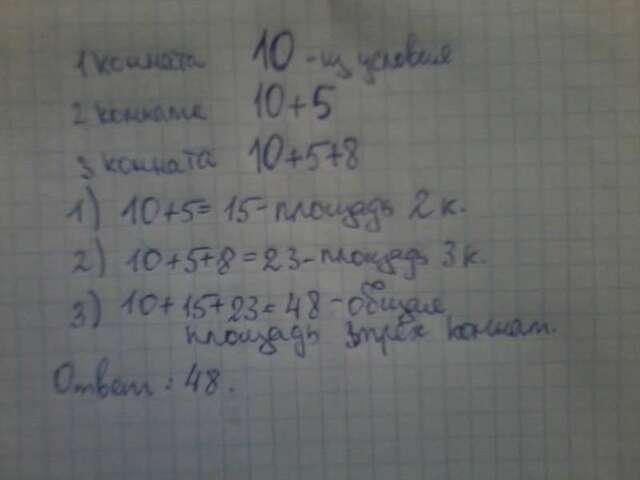 1 комната 10 - из условия
2 комната 10+5
3 комната 10+5+8
1) 10+5=15-площадь 2 к.
2) 10+5+8=23-площадь 3 к.
3) 10+15+23=48-общая
площадь трёх комнат.
Ответ: 48.